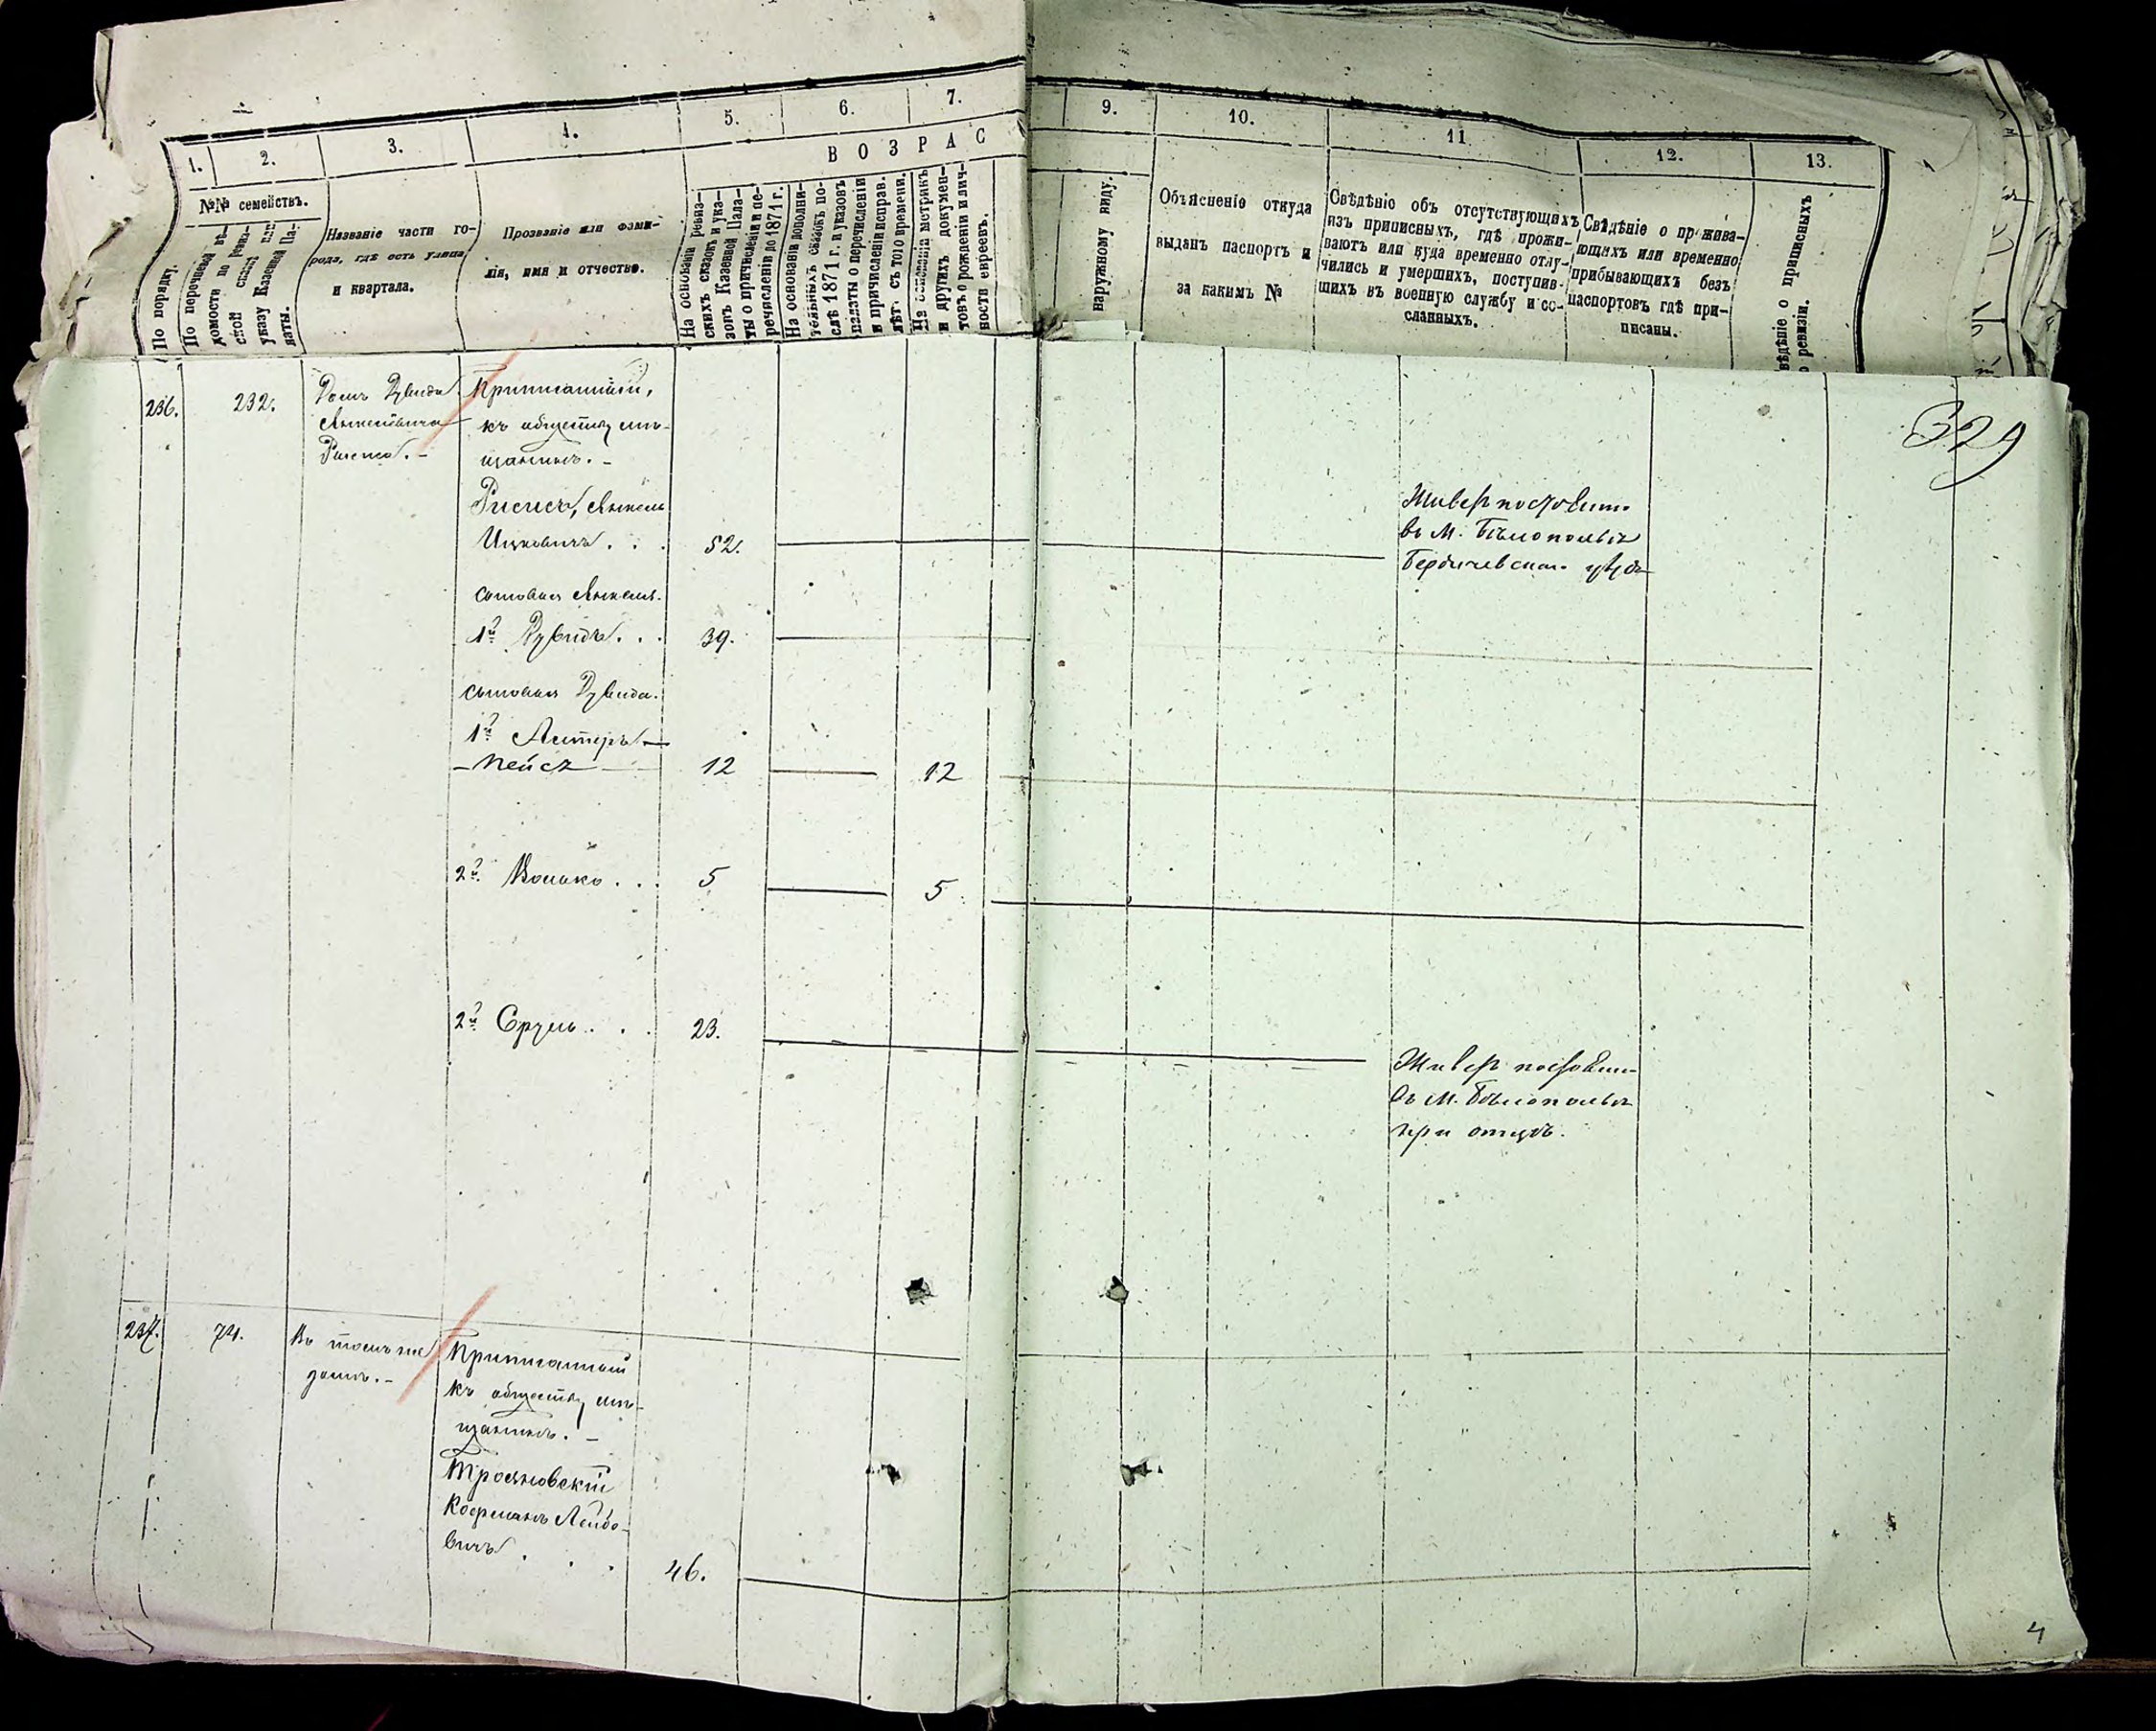 1.
2.
3.
4.
5.
6.
7.
9.
10.
11
12.
13.
В О З Р А С
№№ семействъ.
По порядку.
По перечневой вѣ-
домости по ревиз-
ской сказкѣ или
указу Казенной Па-
латы.
Названіе части го-
рода, гдѣ есть улица
и квартала.
Прозваніе или фами-
лія, имя и отчество.
На основаніи ревиз-
скихъ сказокъ и ука-
зовъ Казенной Пала-
ты о причисленіи и пе-
речисленіи до 1871 г.
На основаніи дополни-
тельныхъ сказокъ по-
слѣ 1871 г. и указовъ
палаты о перечисленіи
и причисленіи исправ.
лѣтъ съ того времени.
На основаніи метрикъ
и другихъ докумен-
товъ о рожденіи и лич-
ности евреевъ.
наружному виду.
Объясненіе откуда
выданъ паспортъ и
за какимъ №
Свѣдѣніе объ отсутствующихъ
изъ приписныхъ, гдѣ прожи-
ваютъ или куда временно отлу-
чились и умершихъ, поступив-
шихъ въ военную службу и со-
сланныхъ.
Свѣдѣніе о прожива-
ющихъ или временно
прибывающихъ безъ
паспортовъ гдѣ при-
писаны.
вѣдѣніе о приписныхъ
о ревизіи.
329
236.
232.
Домъ Дувида
Янкелевича
Рисиса. -
Приписанный,
къ обществу мѣ-
щанинъ. -
Рисисъ, Янкель
Ицковичъ . . .
52.
Живетъ постоянно
въ М. Бѣлопольѣ
Бердичевскаго уѣзда
сыновья Янкеля.
1й Дувидъ . . .
39.
сыновья Дувида.
1й Лейзеръ —
— Пейсъ —
12
12
2й Волько . . .
5
5
2й Сруль . . .
23.
Живетъ постоянно
въ М. Бѣлопольѣ
при отцѣ.
237.
74.
Въ томъ же
домѣ. -
Приписанный
къ обществу мѣ-
щанинъ. -
Трояновскій
Кофманъ Лейбо-
вичъ . . .
46.
4